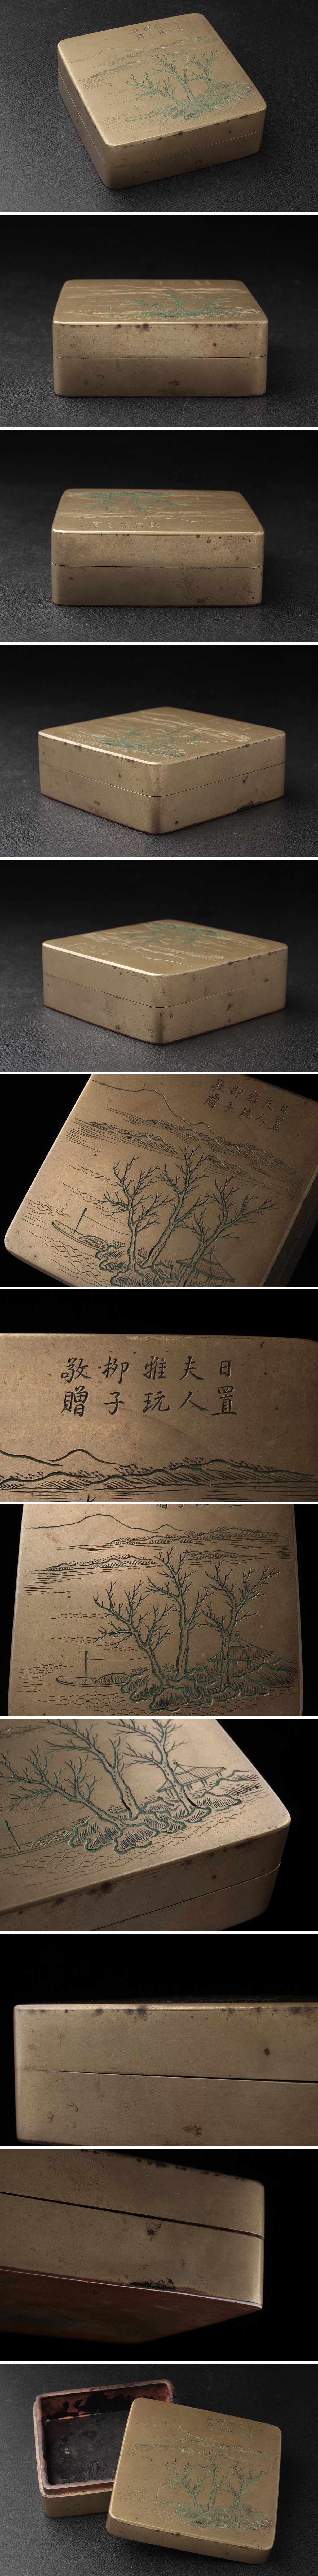 日置
夫人
雅玩
柳子
敬贈